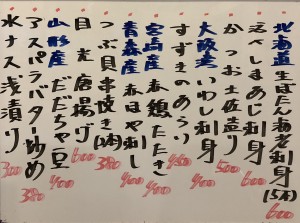 北海道生ぼたん海老刺身(5本) 600
活〆しまあじ刺身 600
かつお土佐造り 500
大阪産いわし刺身 400
すずきのあらい 450
宮崎産 春鶏たたき 400
青森産 長芋わさび 400
つぶ貝串焼き(1本) 380
目光唐揚げ 600
山形産だだちゃ豆 400
アスパラバター炒め 380
水ナス浅漬け 300